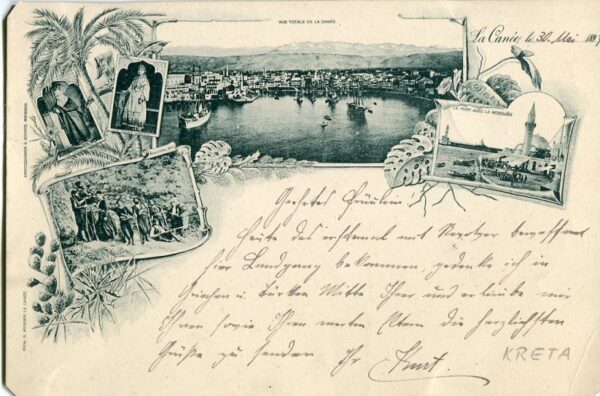 VUE TOTALE DE LA CANÉE
La Canée, le 30. Mai 189
LE PORT AVEC LA MOSQUÉE
Geehrtes Fräulein!
Heute das erstemal mit
hier Landgang bekommen, gedenke ich in
Griechen u. Türken Mitte Ihrer und erlaube mir
Ihnen sowie Ihren werten Eltern die herzlichsten
Grüße zu senden Ihr Kurt.
KRETA